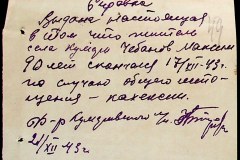 Справка
Выдана настоящая
в том что житель
села Кумари Чебанов Максим
90 лет скончался 17/XII-43г.
по случаю общего исто-
щения - кахексии.
Д-р
21/XII-43г.